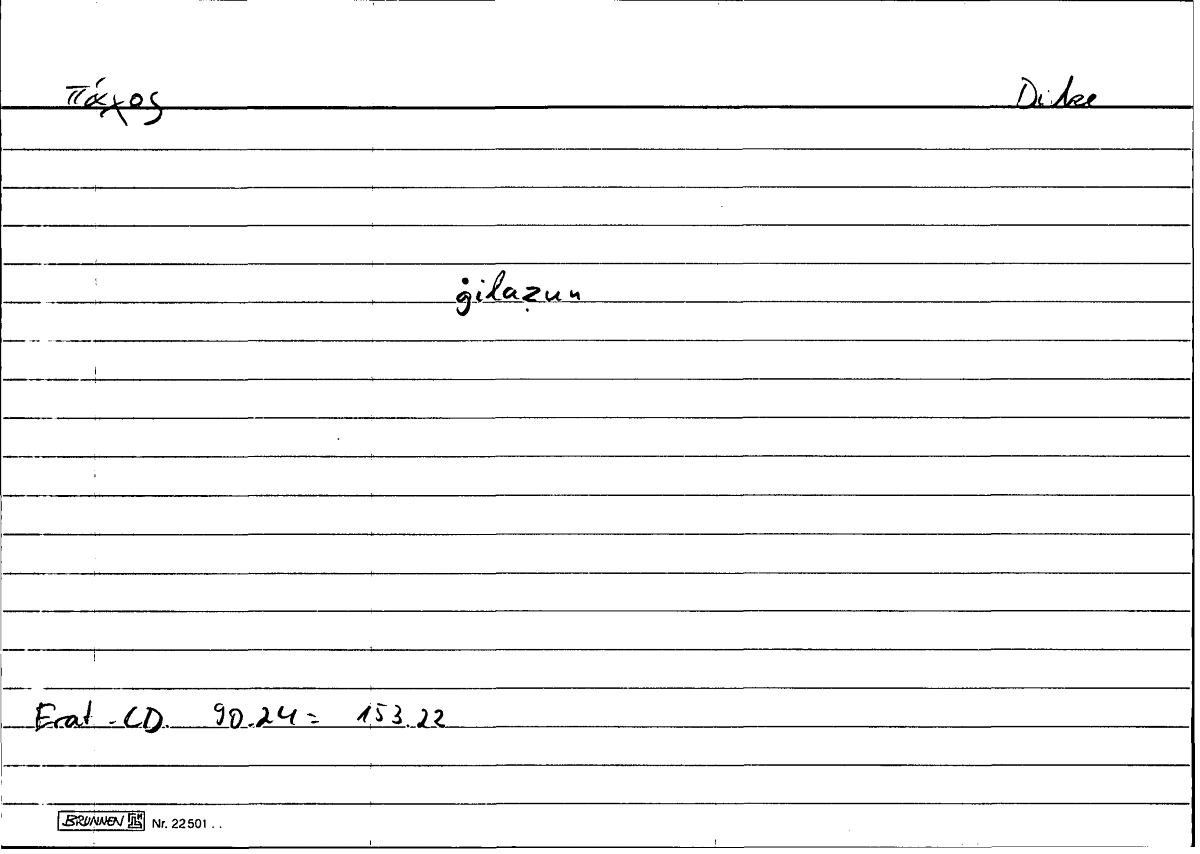 πάχος Dicke
ġilaẓun
Erat-CD. 90.24 = 153.22
BRUNNEN Nr. 22501 . .